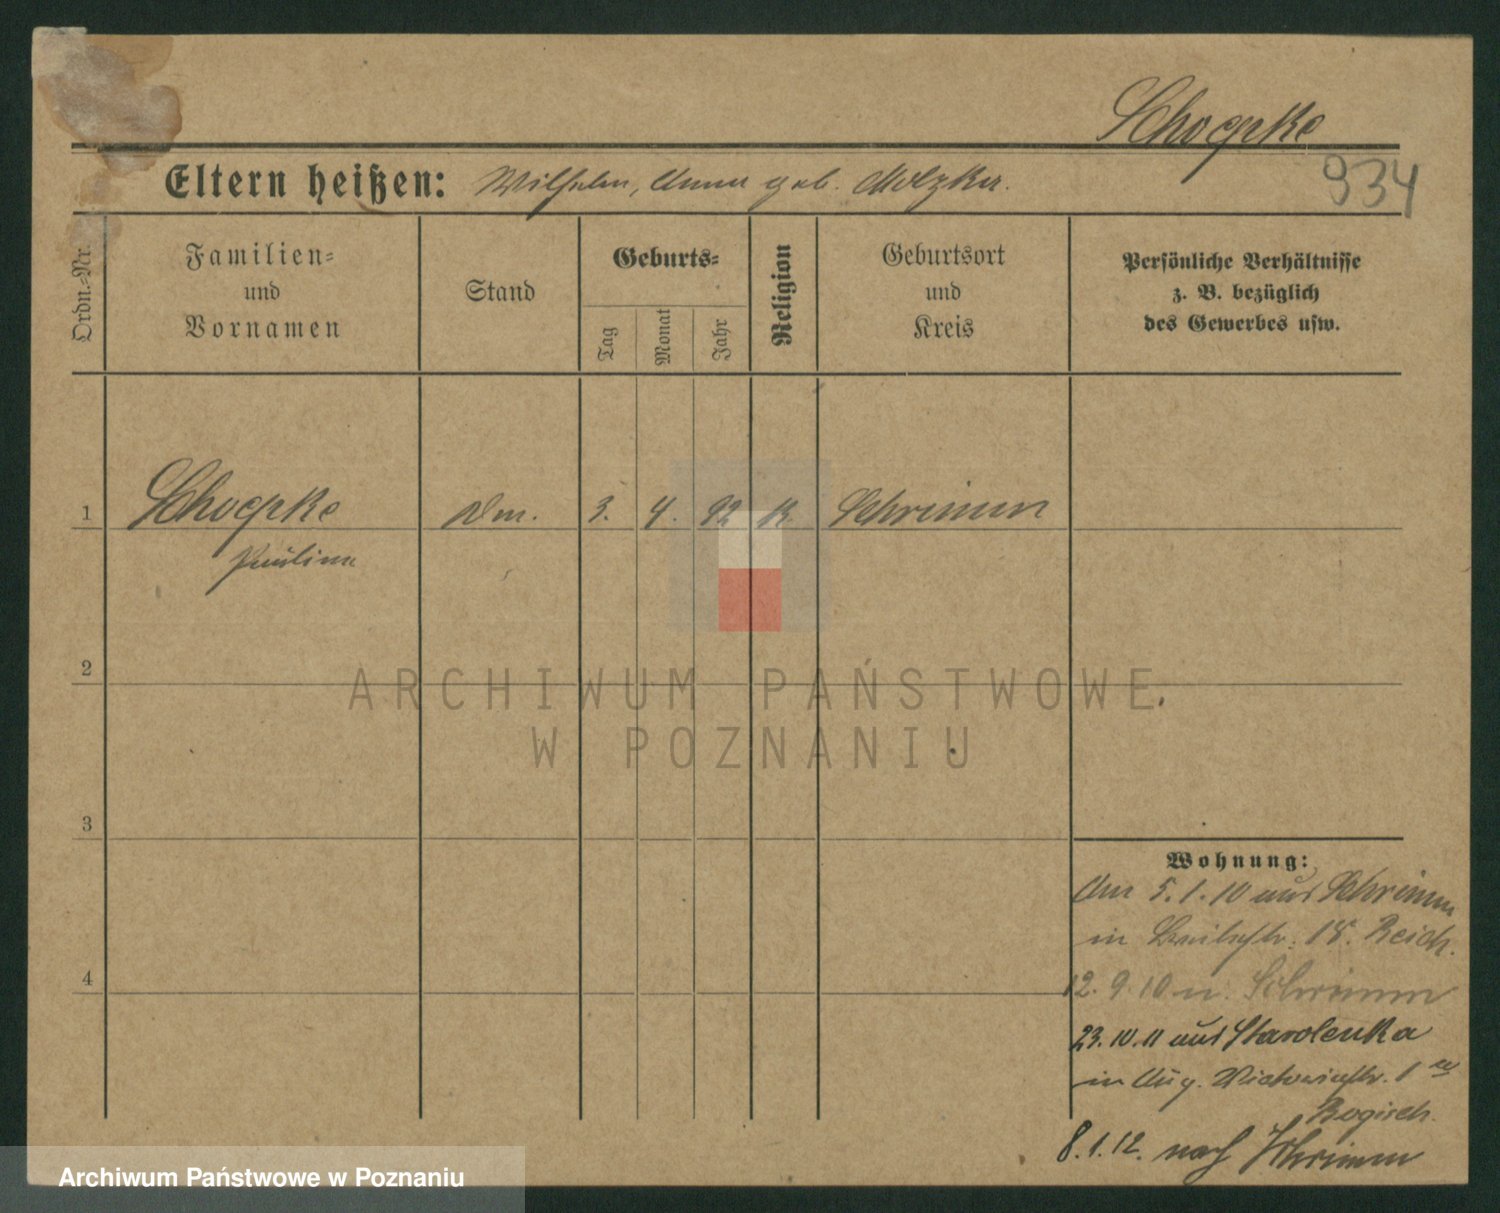 Schoepke
934
Eltern heißen: Wilhelm, Anna geb. Molzka.
Ordn.-Nr.
Familien-
und
Vornamen
Stand
Geburts-
Tag
Monat
Jahr
Religion
Geburtsort
und
Kreis
Persönliche Verhältnisse
z. B. bezüglich
des Gewerbes usw.
1 Schoepke Dm. 3. 4. 92 K. Schrimm
Paulina
2
ARCHIWUM PAŃSTWOWE
W POZNANIU
3
Wohnung:
Am 5.1.10 aus Schrimm
in 18. Reich.
4
12.9.10 n. Schrimm
23.10.11 aus Starolenka
in Aug. Victoriastr. 1
8.1.12. nach Schrimm
Archiwum Państwowe w Poznaniu